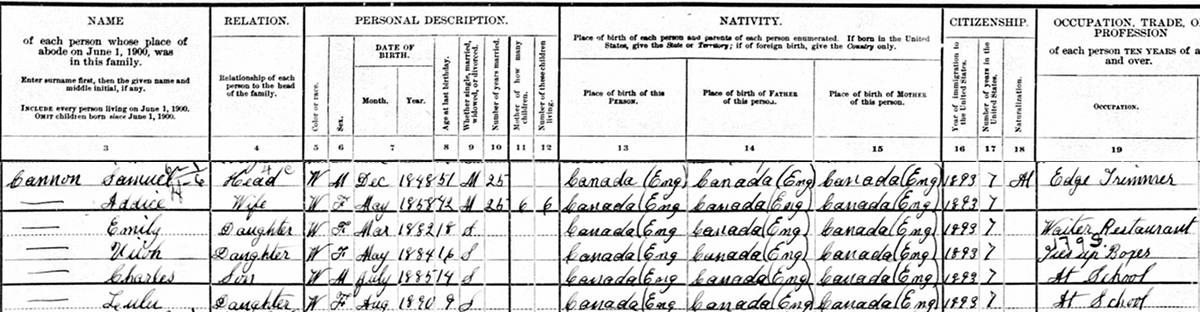 NAME RELATION. PERSONAL DESCRIPTION. NATIVITY. CITIZENSHIP. OCCUPATION, TRADE, O
PROFESSION
of each person whose place of
abode on June 1, 1900, was
in this family.
Enter surname first, then the given name and
middle initial, if any.
INCLUDE every person living on June 1, 1900.
OMIT children born since June 1, 1900.
Relationship of each
person to the head
of the family.
Color or race.
Sex.
DATE OF
BIRTH.
Month. Year.
Age at last birthday.
Whether single, married,
widowed, or divorced.
Number of years married.
Mother of how many
children.
Number of these children
living.
Place of birth of each person and parents of each person enumerated. If born in the United
States, give the State or Territory; if of foreign birth, give the Country only.
Place of birth of this
PERSON.
Place of birth of FATHER
of this person.
Place of birth of MOTHER
of this person.
Year of immigration to
the United States.
Number of years in the
United States.
Naturalization.
of each person TEN YEARS of a
and over.
OCCUPATION.
3 4 5 6 7 8 9 10 11 12 13 14 15 16 17 18 19
Cannon Samuel Head W M Dec 1848 51 M 25 Canada (Eng) Canada (Eng) Canada (Eng) 1893 7 Edge Trimmer
— Addice Wife W F May 1858 42 M 25 6 6 Canada (Eng Canada (Eng) Canada (Eng) 1893 7
— Emily Daughter W F Mar 1882 18 S Canada (Eng Canada (Eng) Canada (Eng) 1893 7 Waiter Restaurant
— Daughter W F May 1884 16 S Canada (Eng Canada (Eng) Canada (Eng) 1893 7
— Charles Son W M July 1885 14 S Canada (Eng Canada (Eng) Canada (Eng) 1893 7 At School
— Lulu Daughter W F Aug 1890 9 S Canada (Eng Canada (Eng) Canada (Eng) 1893 7 At School